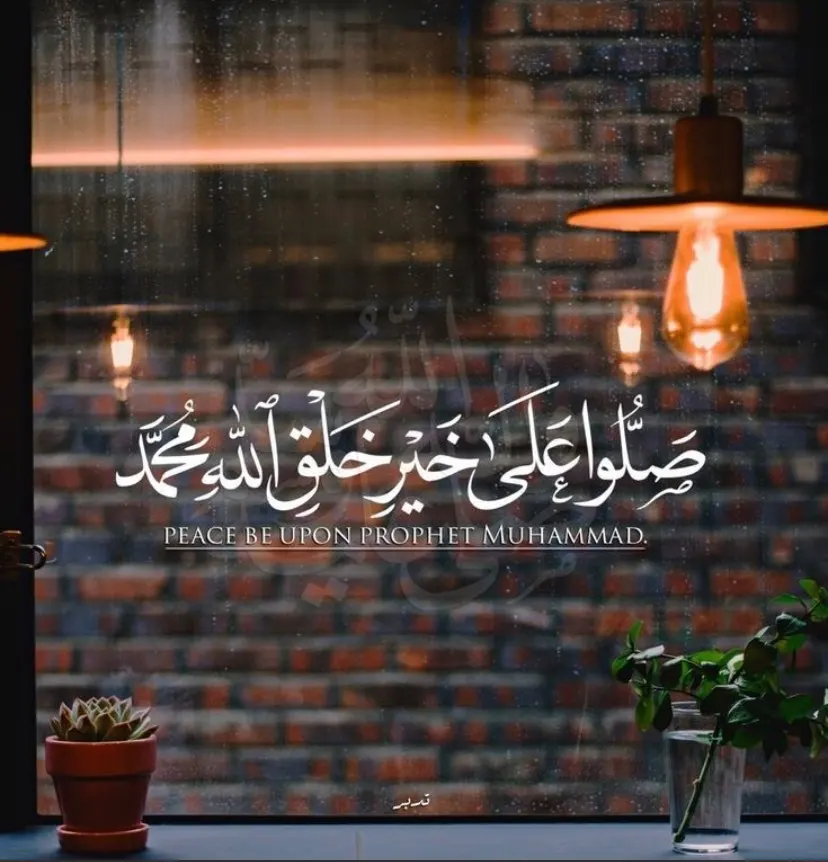 صَلُّوا عَلَىٰ خَيْرِ خَلْقِ ٱللَّهِ مُحَمَّد
PEACE BE UPON PROPHET MUHAMMAD.
تدبر